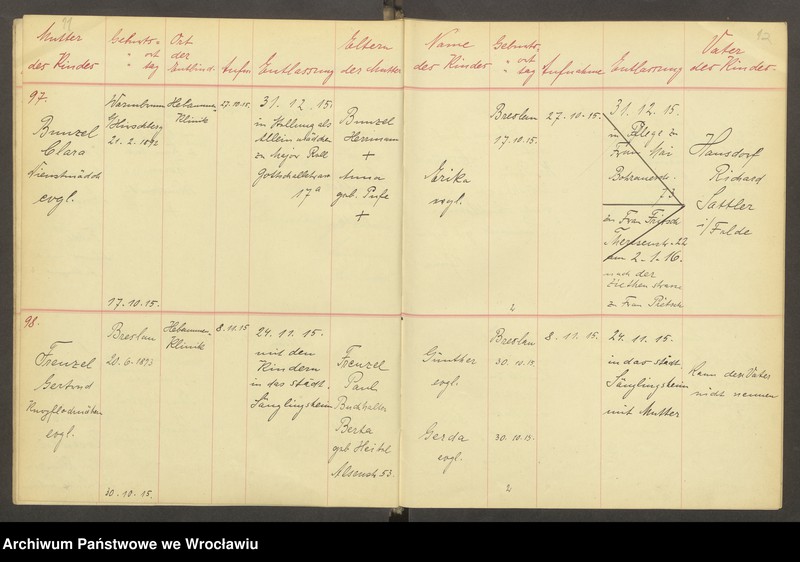 Mutter
des Kindes
Geburts-
" ort
" tag
Ort
der
Entbind.
Aufn.
Entlassung
Eltern
der Mutter
Name
des Kindes
Geburts-
" ort
" tag
Aufnahme
Entlassung
Vater
des Kindes
12
97.
Bunzel
Clara
Dienstmädch
evgl.
Warmbrunn
Hirschberg
21. 2. 1892
17. 10. 15.
Hebammen-
Klinik
27. 10. 15.
31. 12. 15.
in Stellung als
Alleinmädchen
zu Major
Gottschallstrasse
17a
Bunzel
Hermann
+
Anna
geb.
+
Erika
evgl.
Breslau
17. 10. 15.
2
27. 10. 15.
31. 12. 15.
in Pflege zu
Frau
73
zu Frau Fritsch
Theresienstr. 22
am 2. 1. 16.
nach der
Ziethenstrasse
zu Frau
Hansdorf
Richard
Sattler
i/ Felde
98.
Frenzel
Gertrud
evgl.
Breslau
20. 6. 1893
30. 10. 15.
Hebammen-
Klinik
8. 10. 15
24. 11. 15.
mit den
Kindern
in das städt.
Säuglingsheim
Frenzel
Paul
Buchhalter
Berta
geb.
Alsenstr. 53.
Günther
evgl.
Gerda
evgl.
Breslau
30. 10. 15.
30. 10. 15.
2
8. 11. 15.
24. 11. 15.
in das städt.
Säuglingsheim
mit Mutter
Kann den Vater
nicht nennen
Archiwum Państwowe we Wrocławiu